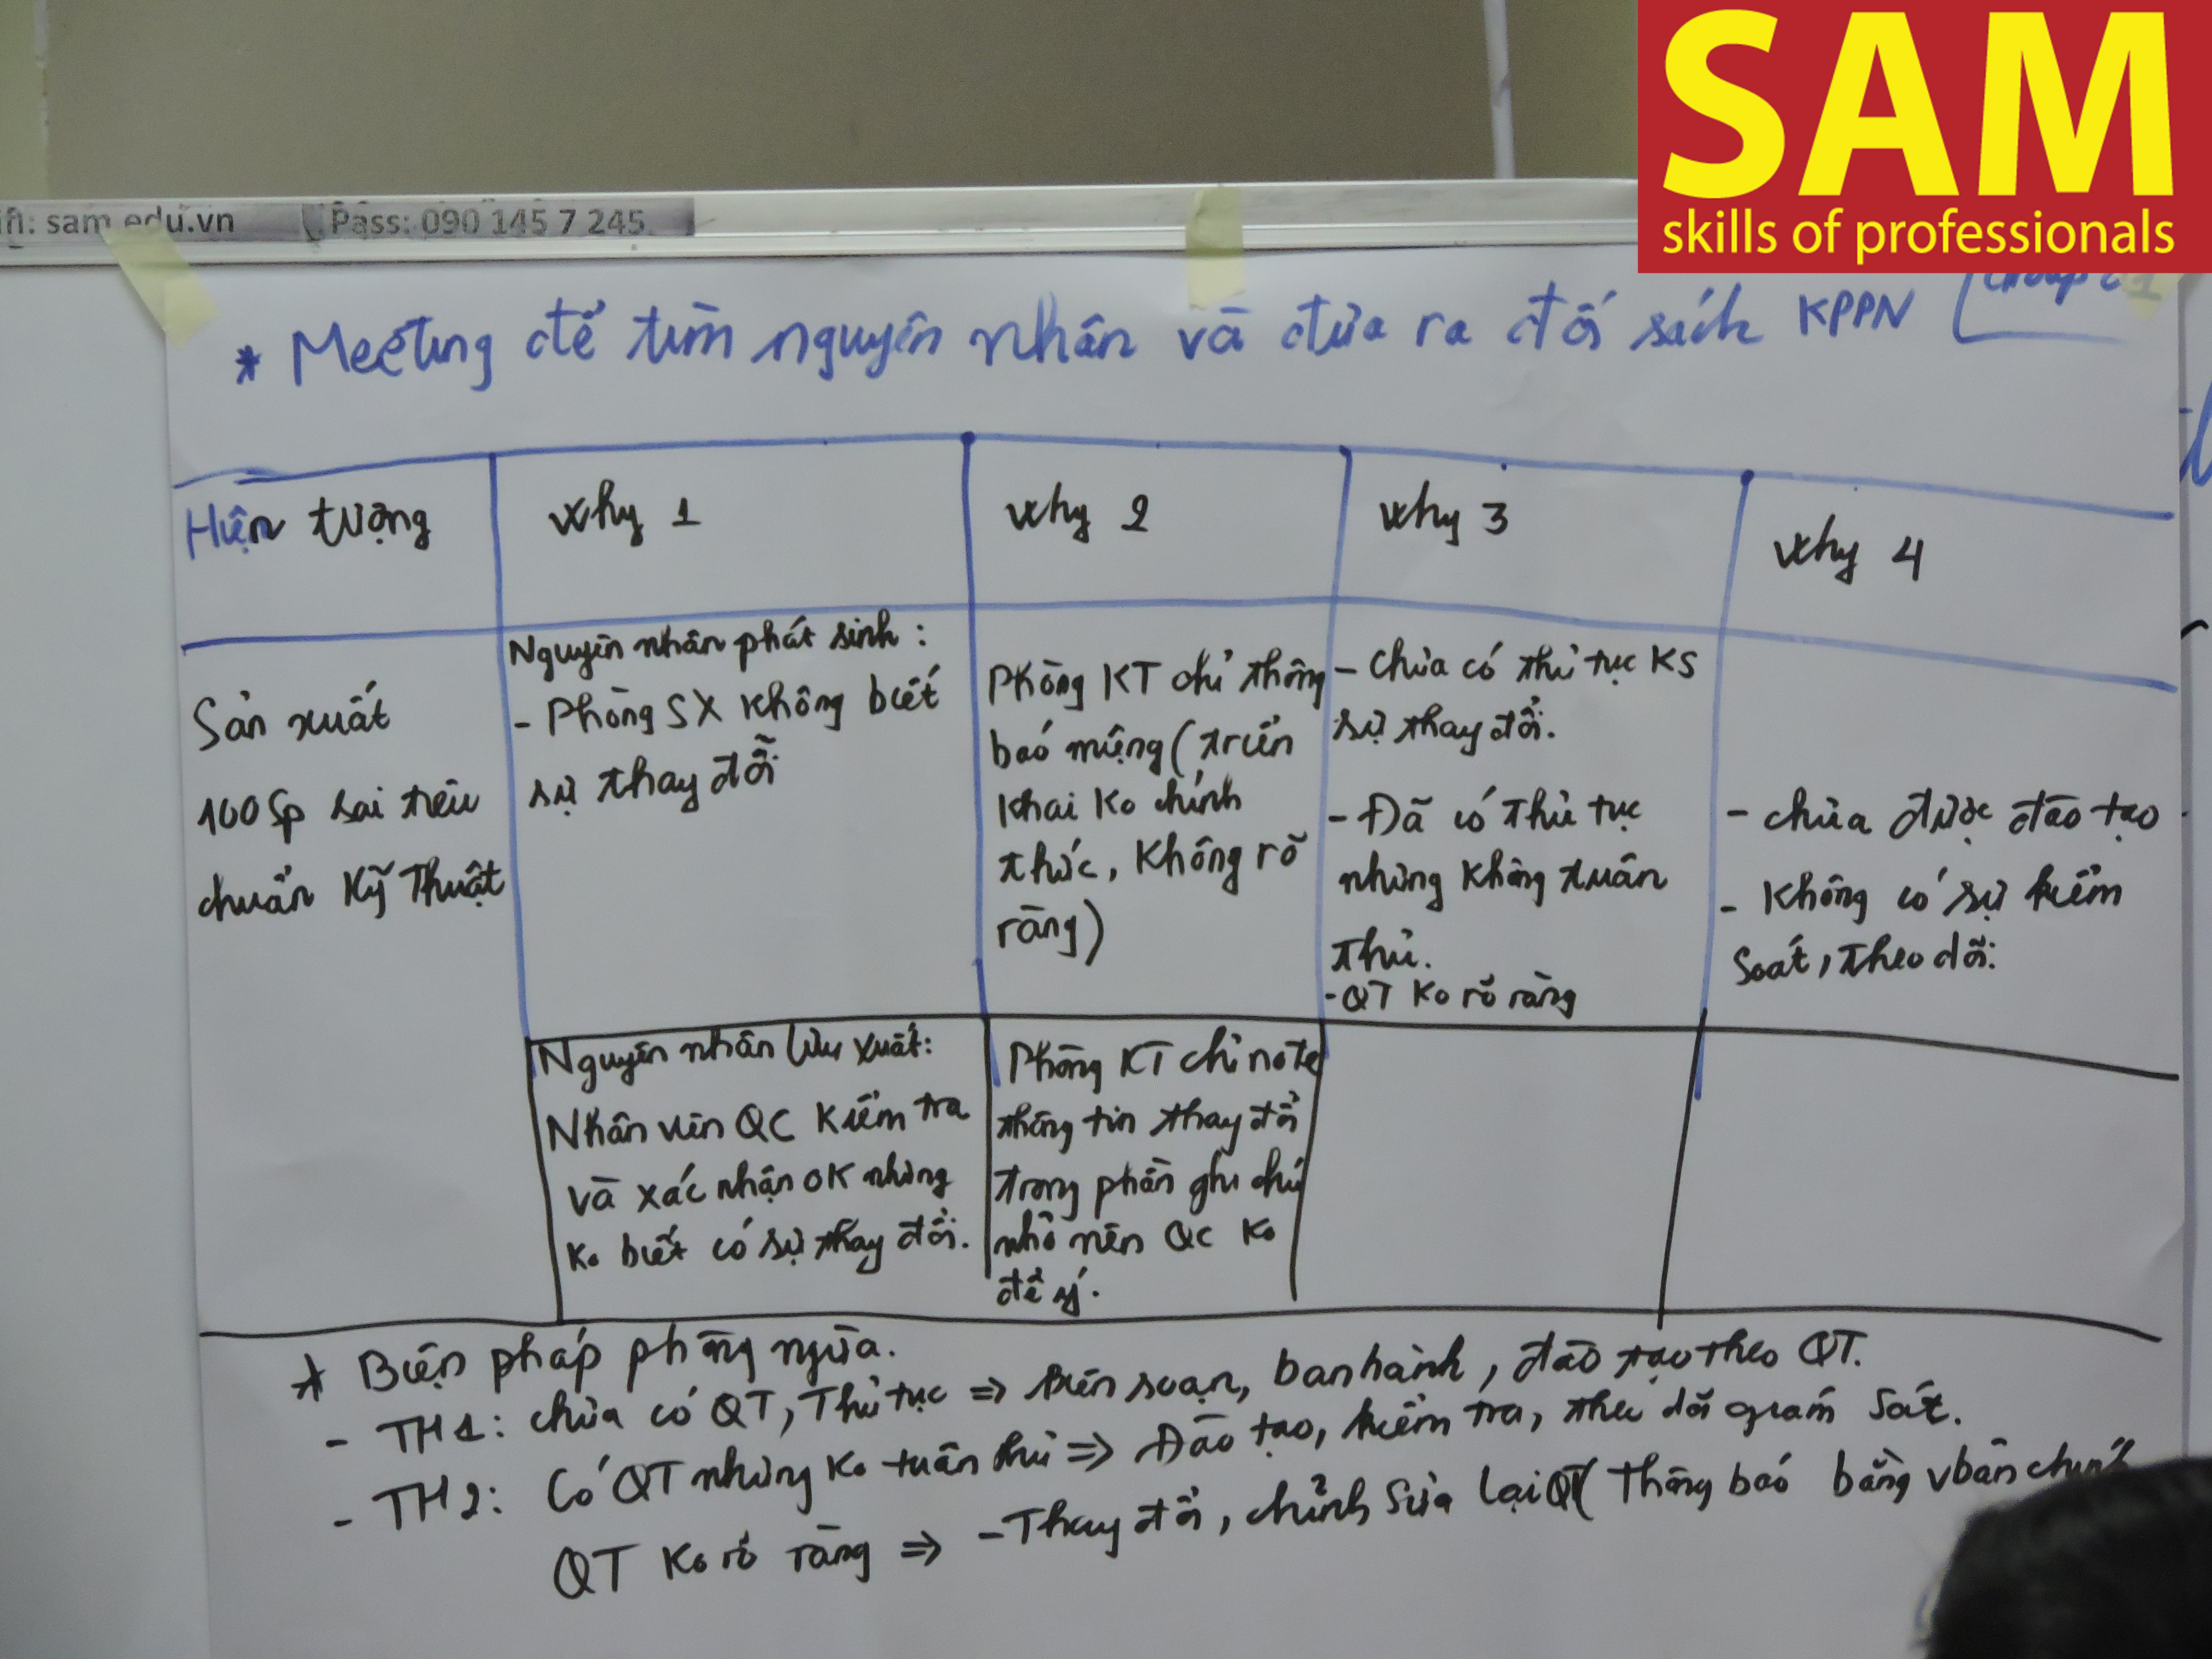 SAM
skills of professionals
sam.edu.vn Pass: 090 145 7 245
* Meeting để tìm nguyên nhân và đưa ra đối sách KPPN
Hiện tượng
why 1
why 2
why 3
why 4
Sản xuất
100 Sp sai tiêu
chuẩn Kỹ Thuật
Nguyên nhân phát sinh :
- Phòng SX không biết
sự thay đổi
Phòng KT chỉ thông
báo miệng (triển
khai ko chính
thức, không rõ
ràng)
- chưa có thủ tục KS
sự thay đổi.
- Đã có thủ tục
nhưng không tuân
thủ.
- QT ko rõ ràng
- chưa được đào tạo
- không có sự kiểm
soát, theo dõi.
Nguyên nhân lưu xuất:
Nhân viên QC kiểm tra
và xác nhận OK nhưng
ko biết có sự thay đổi.
Phòng KT chỉ note
thông tin thay đổi
trong phần ghi chú
nhỏ nên QC ko
để ý.
* Biện pháp phòng ngừa.
- TH1: chưa có QT, Thủ tục => Biên soạn, ban hành, đào tạo theo QT.
- TH2: Có QT nhưng ko tuân thủ => Đào tạo, kiểm tra, theo dõi giám sát.
QT ko rõ ràng => - Thay đổi, chỉnh sửa lại QT (Thông báo bằng vbản